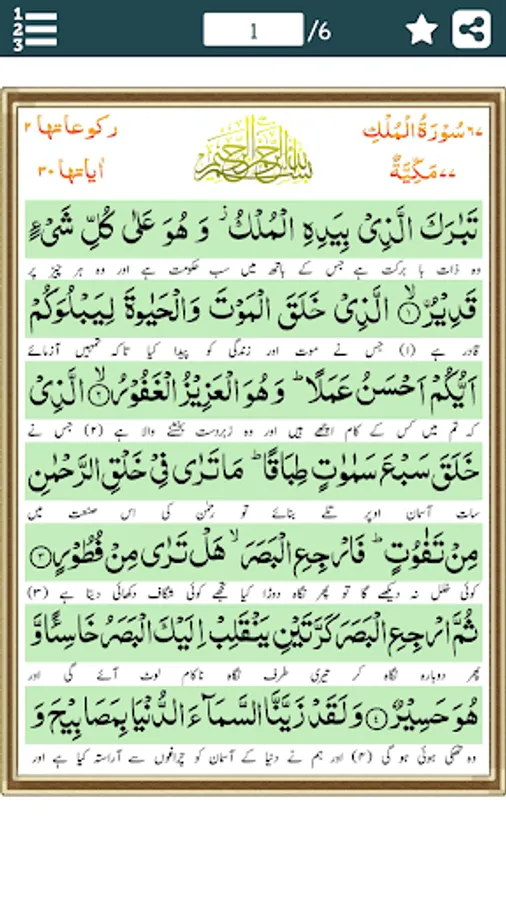 1
2
3
1 /6
٦٧ سُوْرَةُ الْمُلْكِ
رکوعاتها ۲
٧٧ مَكِّيَّةٌ
اٰیاتها ۳۰
بسم الله الرحمن الرحيم
تَبٰرَكَ الَّذِىْ بِيَدِهِ الْمُلْكُ ز وَ هُوَ عَلٰى كُلِّ شَىْءٍ
وہ ذات با برکت ہے جس کے ہاتھ میں سب حکومت ہے اور وہ ہر چیز پر
قَدِيْرُ ۙ﴿۱﴾ الَّذِىْ خَلَقَ الْمَوْتَ وَالْحَيٰوةَ لِيَبْلُوَكُمْ
قادر ہے (۱) جس نے موت اور زندگی کو پیدا کیا تاکہ تمہیں آزمائے
اَيُّكُمْ اَحْسَنُ عَمَلًا ؕ وَ هُوَ الْعَزِيْزُ الْغَفُوْرُ ۙ﴿۲﴾ الَّذِىْ
کہ تم میں کس کے کام اچھے ہیں اور وہ زبردست بخشنے والا ہے (۲) جس نے
خَلَقَ سَبْعَ سَمٰوٰتٍ طِبَاقًا ؕ مَا تَرٰى فِىْ خَلْقِ الرَّحْمٰنِ
سات آسمان اوپر تلے بنائے تو رحمٰن کی اس صنعت میں
مِنْ تَفٰوُتٍ ؕ فَارْجِعِ الْبَصَرَ ۙ هَلْ تَرٰى مِنْ فُطُوْرٍ ﴿۳﴾
کوئی خلل نہ دیکھے گا تو پھر نگاہ دوڑا کیا تجھے کوئی شگاف دکھائی دیتا ہے (۳)
ثُمَّ ارْجِعِ الْبَصَرَ كَرَّتَيْنِ يَنْقَلِبْ اِلَيْكَ الْبَصَرُ خَاسِئًا وَّ
پھر دوبارہ نگاہ کر تیری طرف نگاہ ناکام لوٹ آئے گی اور
هُوَ حَسِيْرٌ ﴿۴﴾ وَ لَقَدْ زَيَّنَّا السَّمَآءَ الدُّنْيَا بِمَصَابِيْحَ وَ
وہ تھکی ہوئی ہو گی (۴) اور ہم نے دنیا کے آسمان کو چراغوں سے آراستہ کیا ہے اور